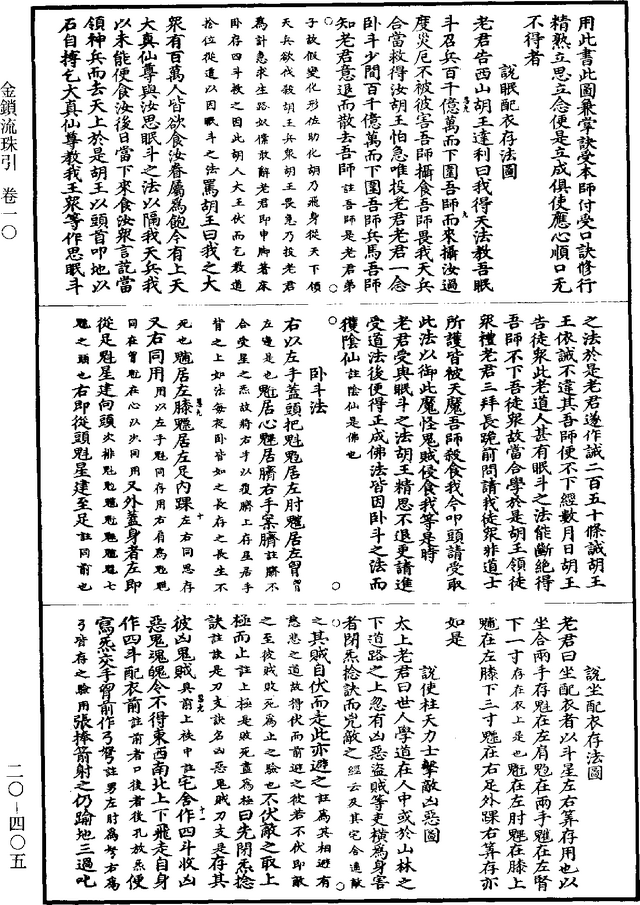 用此書此圖兼掌訣受本師付受口訣修行
精熟立思立念便是立成俱使應心順口无
不得者
說眠配衣存法圖
老君告西山胡王達利曰我得天法教吾眠
斗召兵百千億萬而下圍吾師而來攝汝過
度災厄不被彼害吾師攝食吾師畏我天兵
合當救得汝胡王怕急唯投老君老君一念
卧斗少間百千億萬而下圍吾師兵馬吾師
知老君意退而散去吾師註吾師是老君弟
子故假變化形佐助化胡乃飛身從天下領
天兵欲伐殺胡王兵衆胡王畏急乃投老君
為計急求生路以儻救解老君即申脚著床
卧存四斗救之因此胡人大王伏而乞救道
捨位從道以因眠斗之法罵胡王曰我之大
衆有百萬人皆欲食汝眷屬為飽今有上天
大真仙尊與汝思眠斗之法以隔我天兵我
以未能便食汝後日當下來食汝衆言訖當
領神兵而去天上於是胡王以頭首叩地以
石自搏乞大真仙尊教我王衆等作思眠斗
之法於是老君遂作誡二百五十條誡胡王
王依誡不違其吾師便不下經數月日胡王
告徒衆此老道人甚有眠斗之法能斷絶得
吾師不下吾徒衆故當合學於是胡王領徒
衆禮老君三拜長跪前問請我徒衆非道士
所護皆被天魔吾師殺食我今叩頭請受取
此法以御此魔怪鬼賊侵食我等是時
老君受與眠斗之法胡王精思不退更請進
受道法後便得正成佛法皆因卧斗之法而
獲陰仙註陰仙是佛也
卧斗法
右以左手蓋頭把魁魁居左肘䰢居左𦙄
左邊是也魁居心魓居臍右手案臍註臍不
合受星之炁故將右手以覆臍上存星居手
背之上如法每夜卧皆如之長存之長生不
死也䰢居左膝魒居左足內踝左右同思存
又右同用用以左手魁同存用右肩為魁魁
同在𦙄魁在心以次同用又外蓋身者左即
從足魁星建向頭次排魁七
魁之頭也右即從頭魁星建至足註同前也
老君曰坐配衣者以斗星左右算存用也以
坐合兩手存魁在左肩魁在兩手䰢在左腎
下一寸存在衣上是也魁在左肘魓在膝上
䰢在左膝下三寸魒在右足外踝右算存亦
如是
說坐配衣存法圖
說使柱天力士擊敵凶惡圖
太上老君曰世人學道在人中或於山林之
下道路之上忽有凶惡盜賊等更橫為身害
者閉炁捻訣而咒敵之經云及其宅舍遠敵
之其賊自伏而走此亦避之註為其相避有
慈悲之道故得伏而前避之彼若不伏即敵
之至彼賊敗死為止之驗也不伏敵之取上
極而止註上極是敗死盡為極曰先閉炁捻
訣註訣是刀支訣名凶惡鬼賊刀支是存其
彼凶鬼賊具前上被中註宅舍作四斗收凶
惡鬼魂魄令不得東西南北上下飛走自身
作四斗配衣前註前者口後者後孔放炁便
寫炁交手𦙄前作弓弩註男左肘為弩右為
弓皆存之驗用張捧箭射之仍踰地三過叱
金鎖流珠引 卷一〇
二〇-四〇五